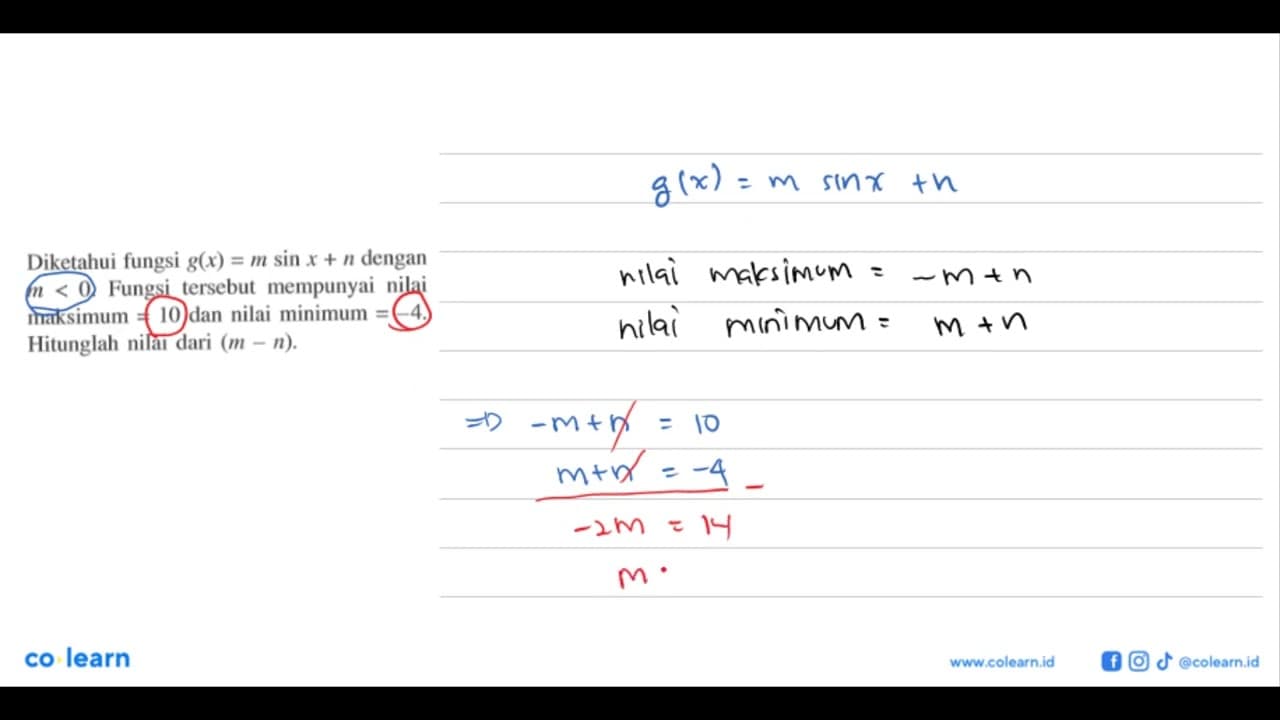 Diketahui fungsi g(x) = m sin x + n dengan
m < 0. Fungsi tersebut mempunyai nilai
maksimum = 10 dan nilai minimum = –4.
Hitunglah nilai dari (m – n).
g(x) = m sin x + n
nilai maksimum = -m + n
nilai minimum = m + n
⇒ -m + n = 10
m + n = -4 -
-2m = 14
m
co learn
www.colearn.id @colearn.id